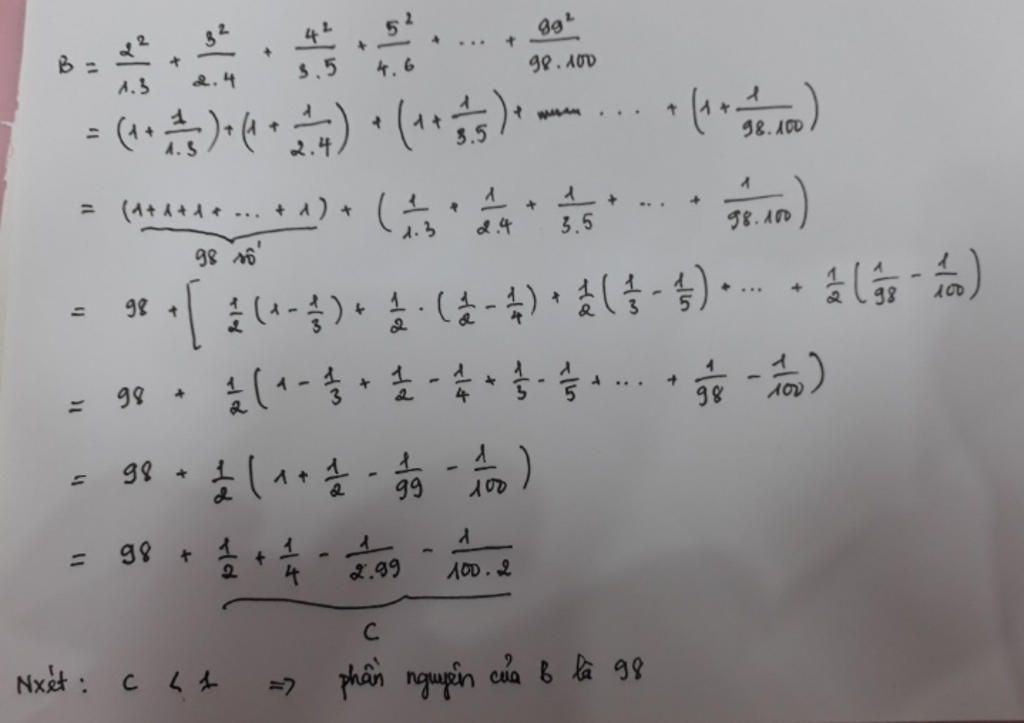 B = 2²/1.3 + 3²/2.4 + 4²/3.5 + 5²/4.6 + ... + 99²/98.100
= (1 + 1/1.3) + (1 + 1/2.4) + (1 + 1/3.5) + ... + (1 + 1/98.100)
= (1+1+1+ ... + 1) + (1/1.3 + 1/2.4 + 1/3.5 + ... + 1/98.100)
98 số
= 98 + [ 1/2 (1 - 1/3) + 1/2 . (1/2 - 1/4) + 1/2 (1/3 - 1/5) + ... + 1/2 (1/98 - 1/100)
= 98 + 1/2 (1 - 1/3 + 1/2 - 1/4 + 1/3 - 1/5 + ... + 1/98 - 1/100)
= 98 + 1/2 (1 + 1/2 - 1/99 - 1/100)
= 98 + 1/2 + 1/4 - 1/2.99 - 1/100.2
C
Nxét : C < 1 => phần nguyên của B là 98